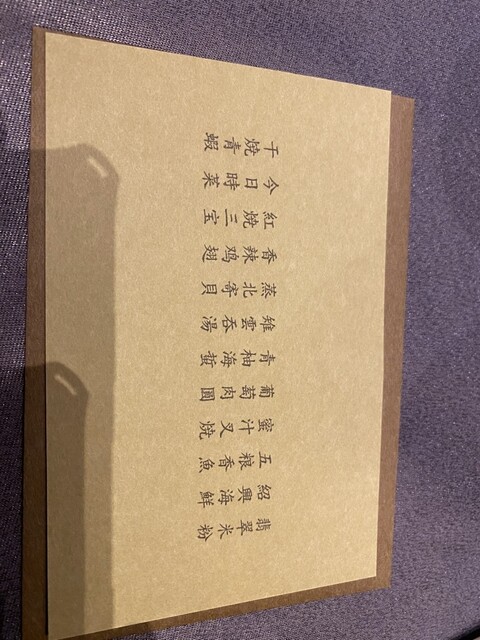 翡翠米粉
紹興海鮮
五粮香魚
蜜汁叉燒
葡萄肉圓
青柚海蜇
雉雲吞湯
蒸北寄貝
香辣鸡翅
紅燒三宝
今日時菜
干燒青蝦